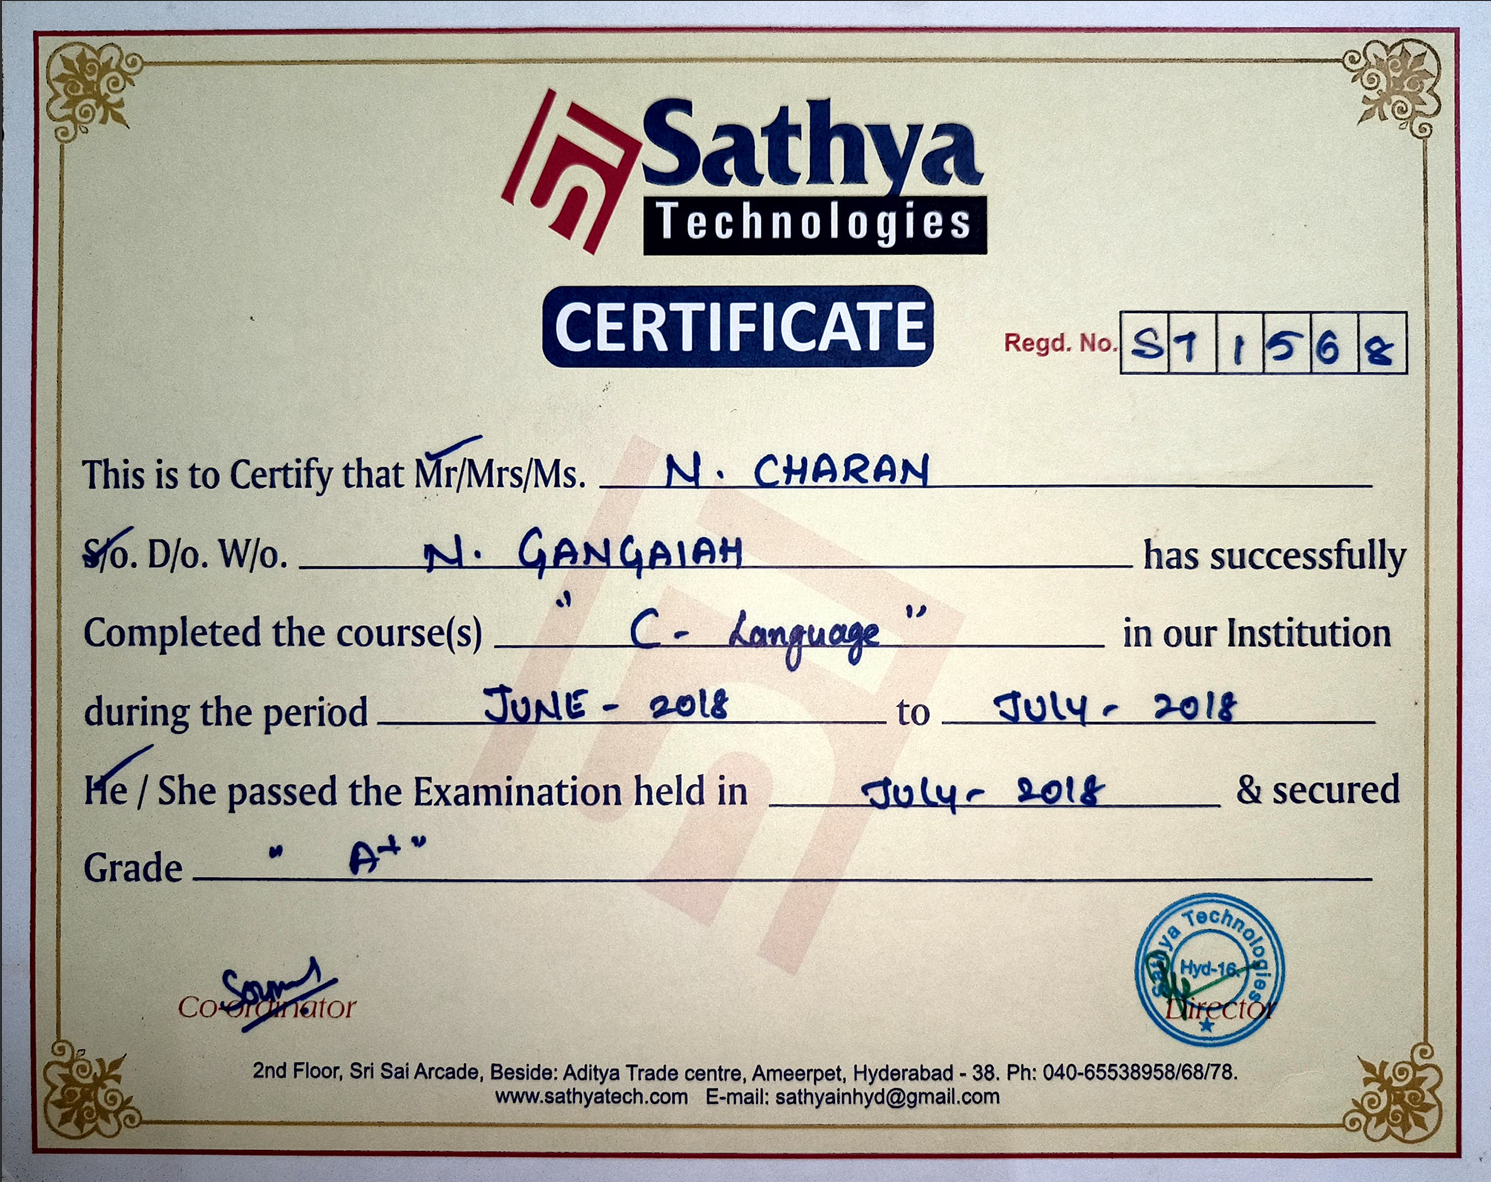 Sathya
Technologies
CERTIFICATE
Regd. No. ST1568
This is to Certify that Mr/Mrs/Ms. N. CHARAN
S/o. D/o. W/o. N. GANGAIAH has successfully
Completed the course(s) " C - Language " in our Institution
during the period JUNE - 2018 to JULY - 2018
He / She passed the Examination held in JULY - 2018 & secured
Grade " A+ "
Sathya Technologies
Hyd-16.
Co-ordinator Director
2nd Floor, Sri Sai Arcade, Beside: Aditya Trade centre, Ameerpet, Hyderabad - 38. Ph: 040-65538958/68/78.
www.sathyatech.com E-mail: sathyainhyd@gmail.com